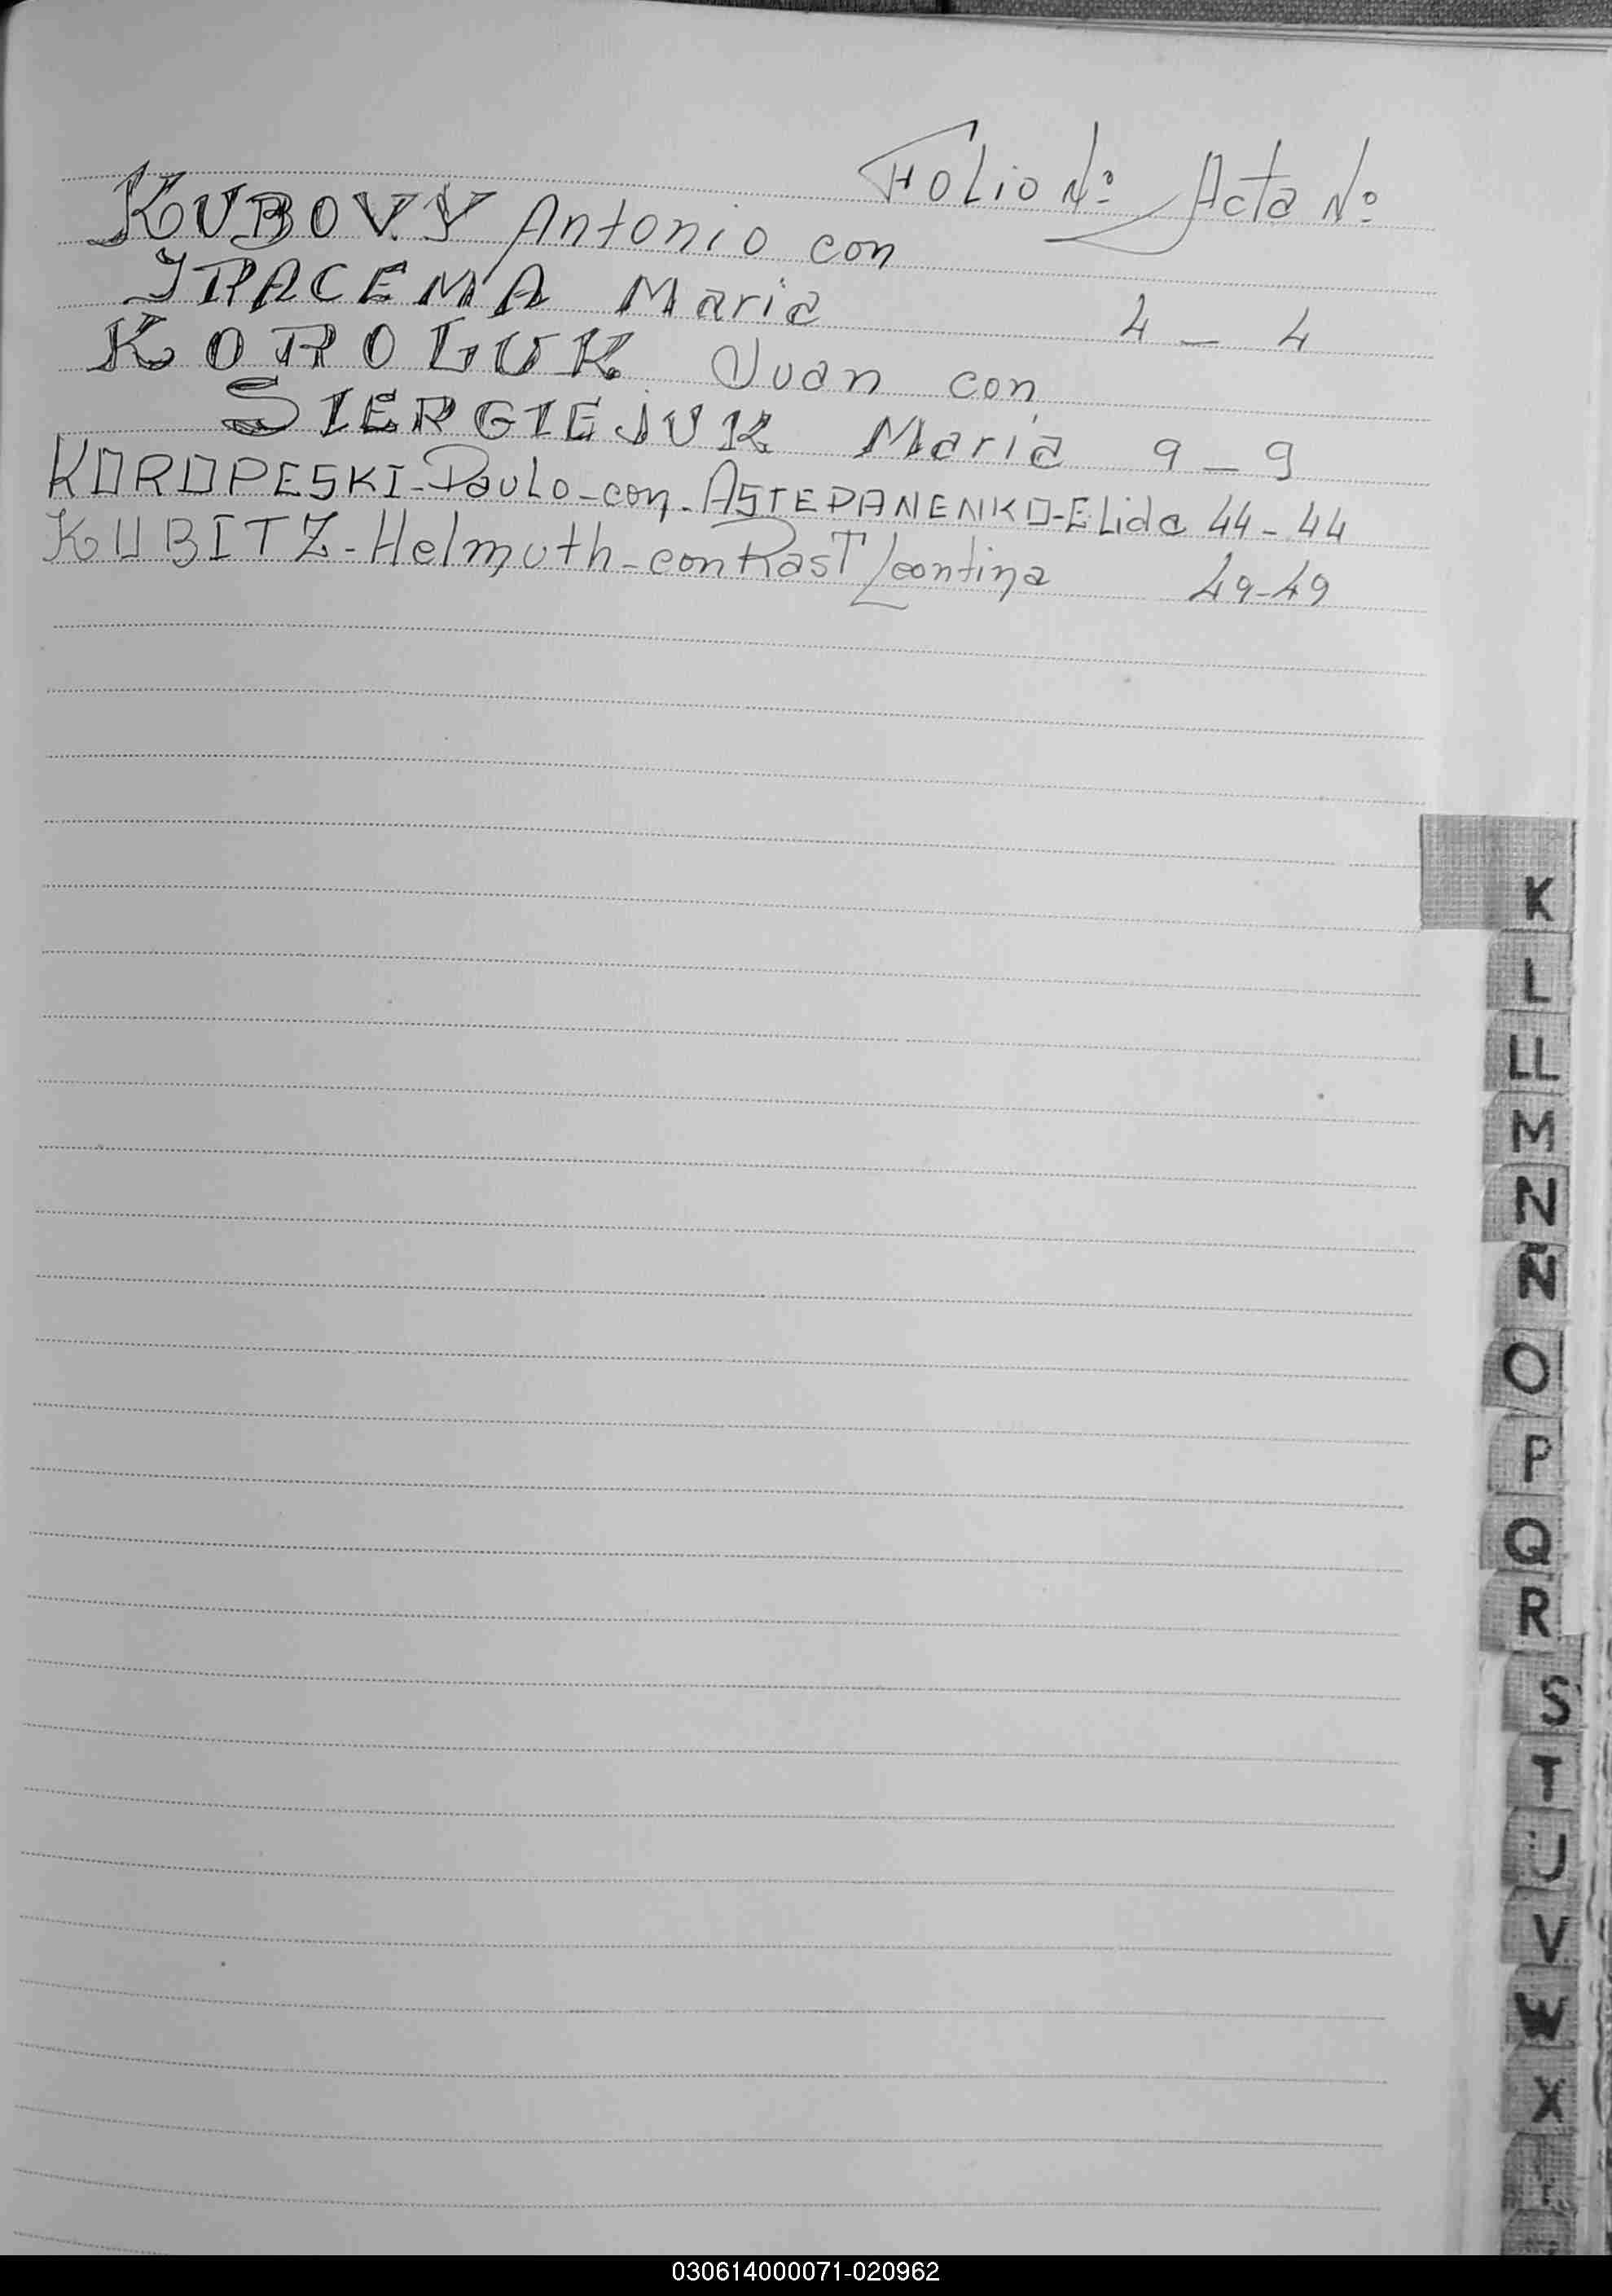 Folio Nº Acta Nº
KUBOVY Antonio con
IRACEMA Maria 4 - 4
KOROLUK Juan con
SIERGIEJUK Maria 9 - 9
KOROPESKI-Paulo-con-ASTEPANENKO-Elida 44-44
KUBITZ-Helmuth-con Rast Leontina 49-49
K
L
LL
M
N
Ñ
O
P
Q
R
S
T
U
V
W
X
030614000071-020962